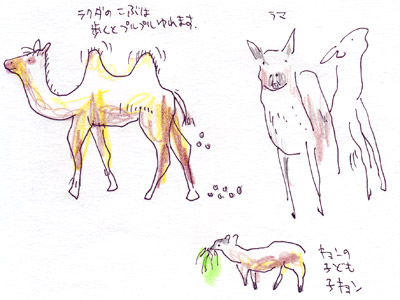 ラクダの こぶは
歩くとプルプルゆれます.
ラマ
キョンの
子ども
子キョン